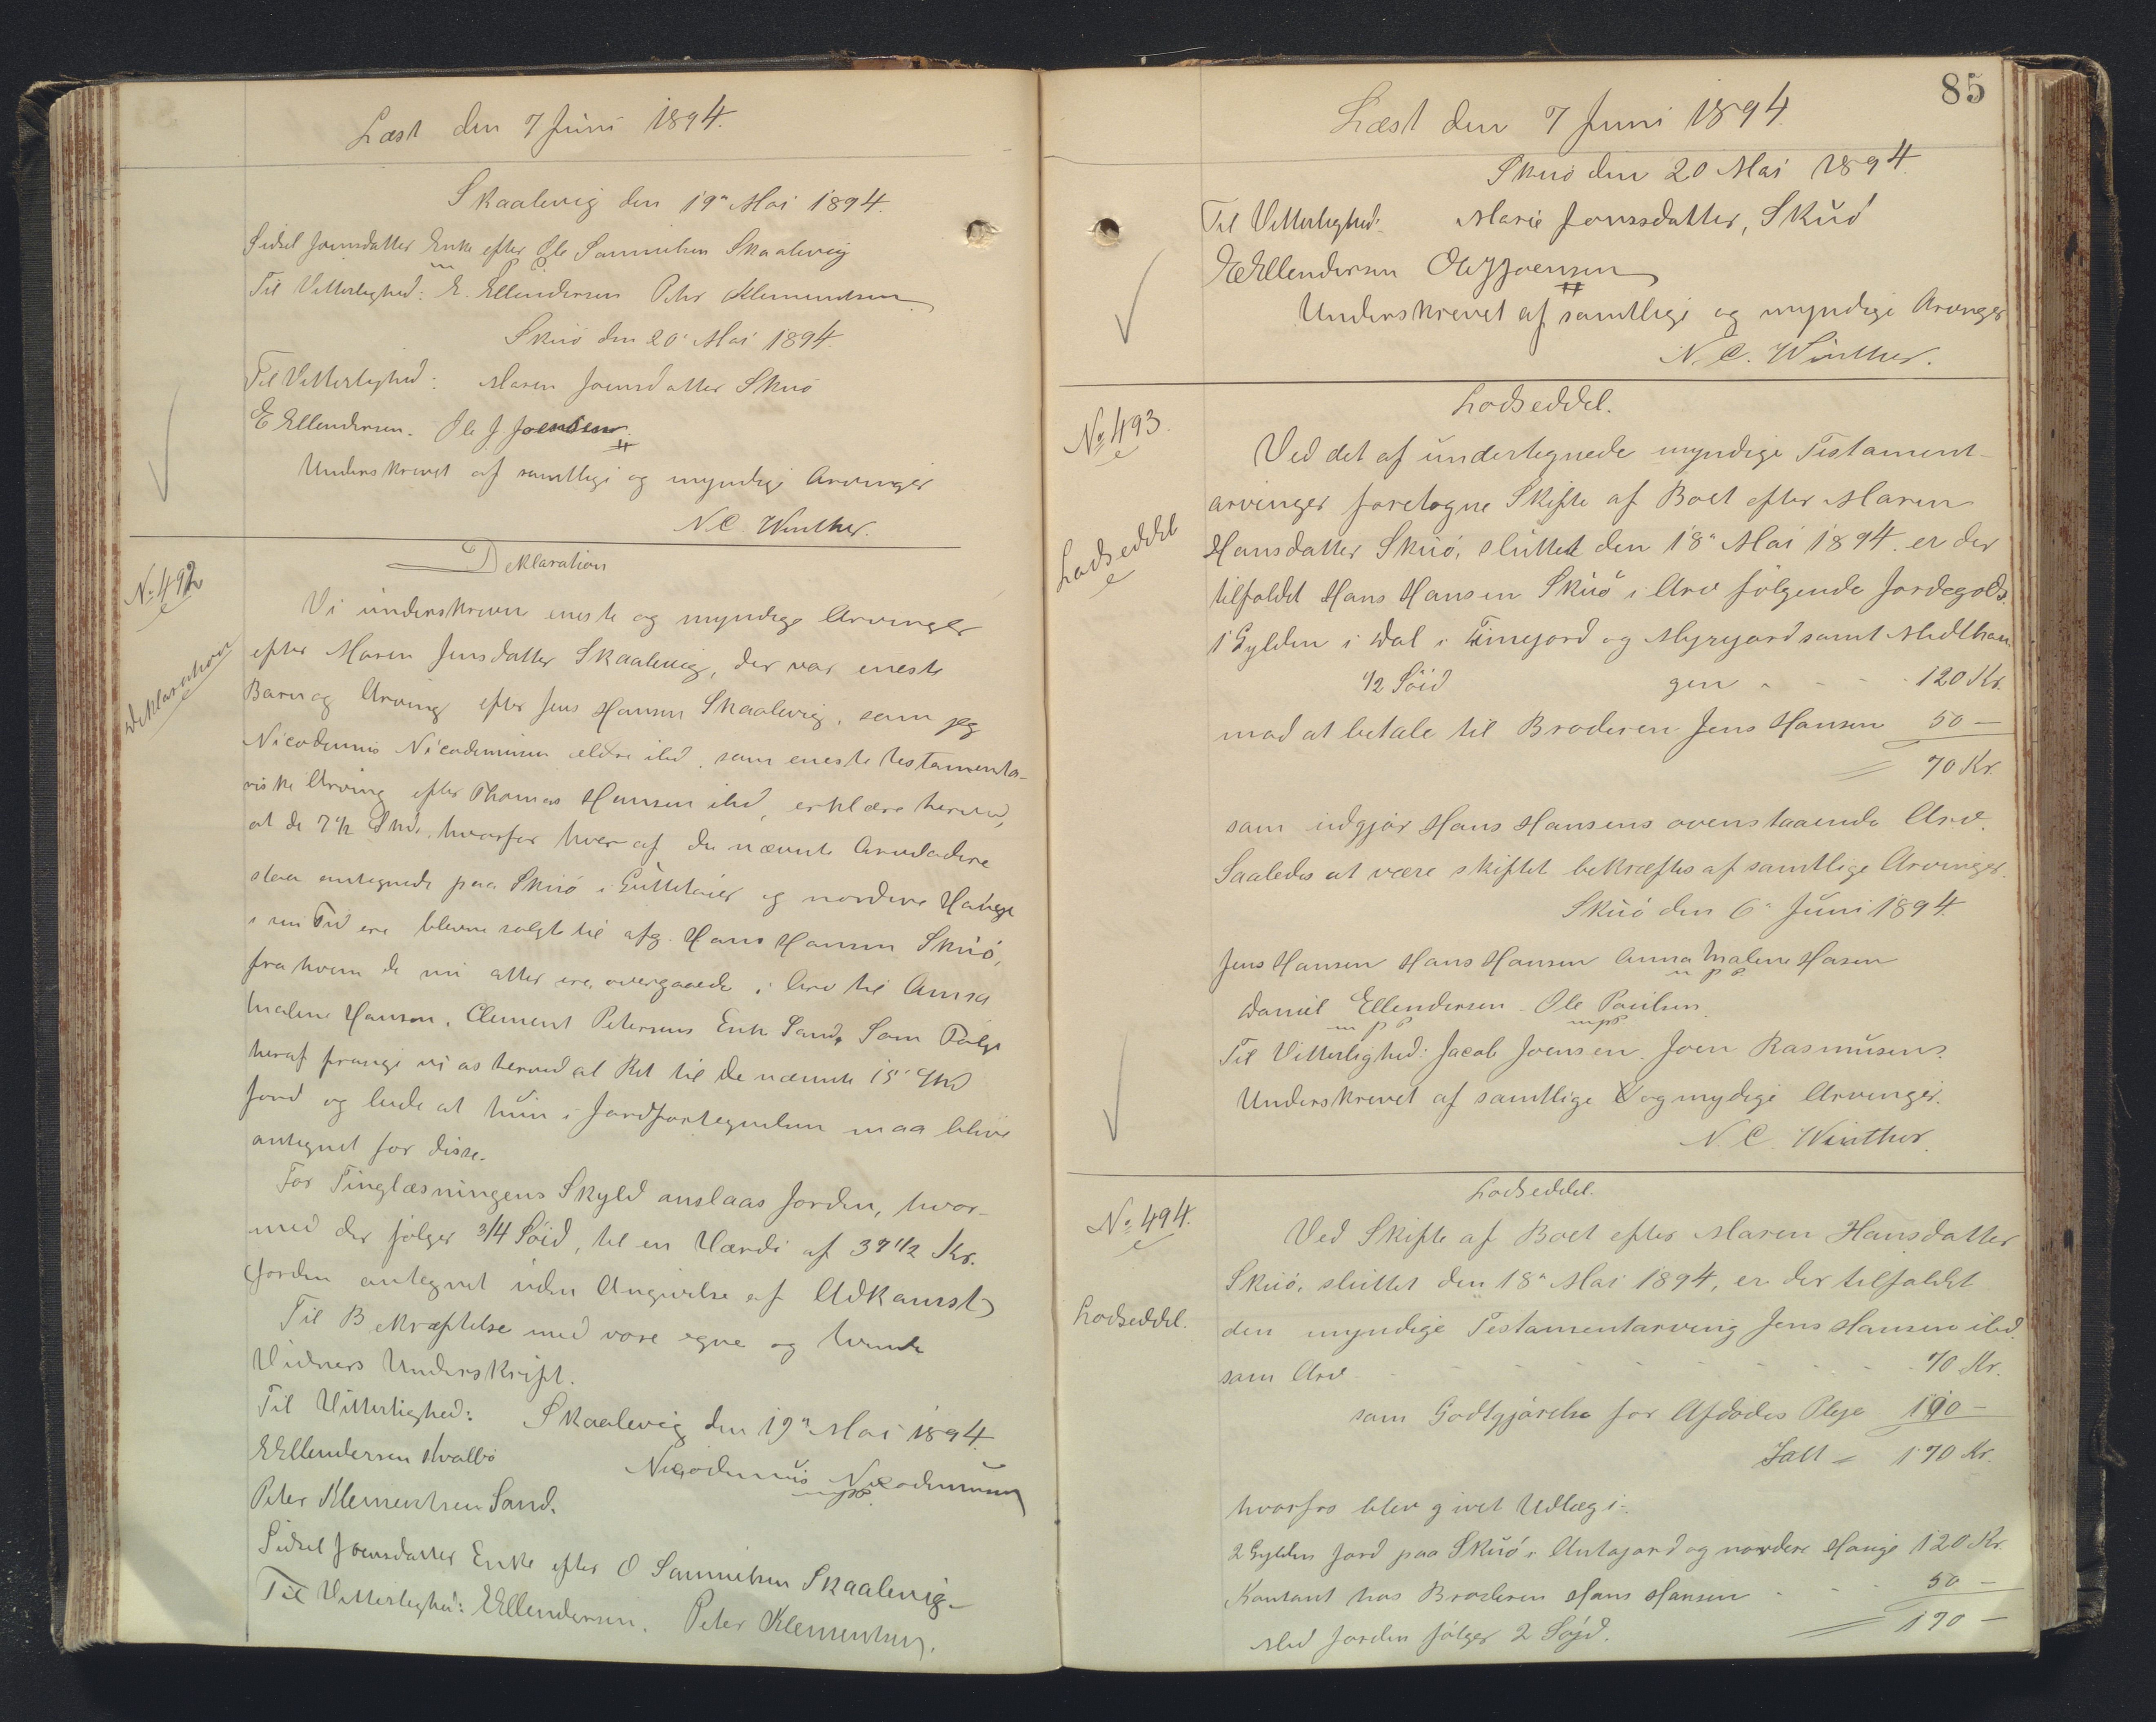 Læst den 7 Juni 1894.
Skaalevig den 19n Mai 1894.
Sidsel Joensdatter Enke efter Ole Samuelsen Skaalevig
m p p
Til Vitterlighed: E. Ellendersen Peter Klementsen
Skuø den 20' Mai 1894.
Til Vitterlighed: Maren Joensdatter Skuø
E Ellendersen. Ole J. Joensen
Underskrevet af samtlige og myndige Arvinger
N. C. Winther.
Deklaration
No 492
Deklaration
Vi underskrevne eneste og myndige Arvinger
efter Maren Jensdatter Skaalevig, der var eneste
Barn og Arving efter Jens Hansen Skaalevig, som jeg
Nicodemus Nicodemusen ældre ibid. som eneste testamenta-
riske Arving efter Thomas Hansen ibid, erklære herved,
at de 7½ Skd. hvorfor hver af de nævnte Arveladere
staa antegnede paa Skuø i og nordere Hauge
i sin Tid ere blevne solgte til afg. Hans Hansen Skuø,
fra hvem de nu atter ere overgaaede i Arv til Anna
Malene Hansen, Clement Petersens Enke Sand. Som Følge
heraf frasige vi os herved al Ret til de nævnte 15 Skd
Jord og bede at hun i Jordfortegnelsen maa blive
antegnet for disse.
For Tinglæsningens Skyld anslaas Jorden, hvor-
med der følger 3/4 Søid, til en Værdi af 37 1/2 Kr.
(Jorden antegnet uden Angivelse af Adkomst)
Til Bekræftelse med vore egne og tvende
Vidners Underskrift.
Til Vitterlighed: Skaalevig den 19n Mai 1894.
E Ellendersen Hvalbø Nicodemus Nicodemusen
mpp.
Peter Klementsen Sand.
Sidsel Joensdatter Enke efter O Samuelsen Skaalevig
Til Vitterlighed: E Ellendersen. Peter Klementsen.
85
Læst den 7 Juni 1894.
Skuø den 20 Mai 1894.
Til Vitterlighed: Marie Jonssdatter, Skuø
E Ellendersen Ole J Joensen
Underskrevet af samtlige og myndige Arvinger
N. C. Winther.
Lodseddel.
No 493.
Lodseddel
Ved det af undertegnede myndige Testament-
arvinger foretagne Skifte af Boet efter Maren
Hansdatter Skuø, sluttet den 18n Mai 1894. er der
tilfaldet Hans Hansen Skuø i Arv følgende Jordegods.
1 Gylden i Dal i Timegord og Myregord samt Midthau
1/2 Søid gen - - - - 120 Kr.
mod at betale til Broderen Jens Hansen 50 —
70 Kr.
som udgjør Hans Hansens ovenstaaende Arv.
Saaledes at være skiftet bekræftes af samtlige Arvinger.
Skuø den 6n Juni 1894.
Jens Hansen Hans Hansen Anna Malene Hasen
m p p
Daniel Ellendersen Ole Poulsen.
m p p mpp
Til Vitterlighed: Jacob Joensen. Joen Rasmusen.
Underskrevet af samtlige og mydige Arvinger.
N. C. Winther.
Lodseddel.
No 494.
Lodseddel.
Ved Skifte af Boet efter Maren Hansdatter
Skuø, sluttet den 18n Mai 1894, er der tilfaldet
den myndige Testamentarving Jens Hansen ibid.
som Arv - - - - - - - - 70 Kr.
som Godtgjørelse for Afdødes Pleje 100 —
Ialt = 170 Kr.
hvorfor blev givet Udlæg i:
2 Gylden Jord paa Skuø i Antagord og nordere Hauge 120 Kr.
Kontant hos Broderen Hans Hansen - - - 50 —
Med Jorden følger 2 Søjd. 170 —